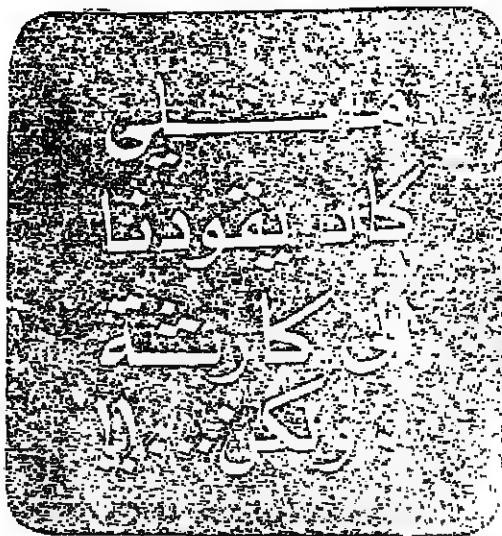 كاد يقودنا
إلى كارثة
ولكن